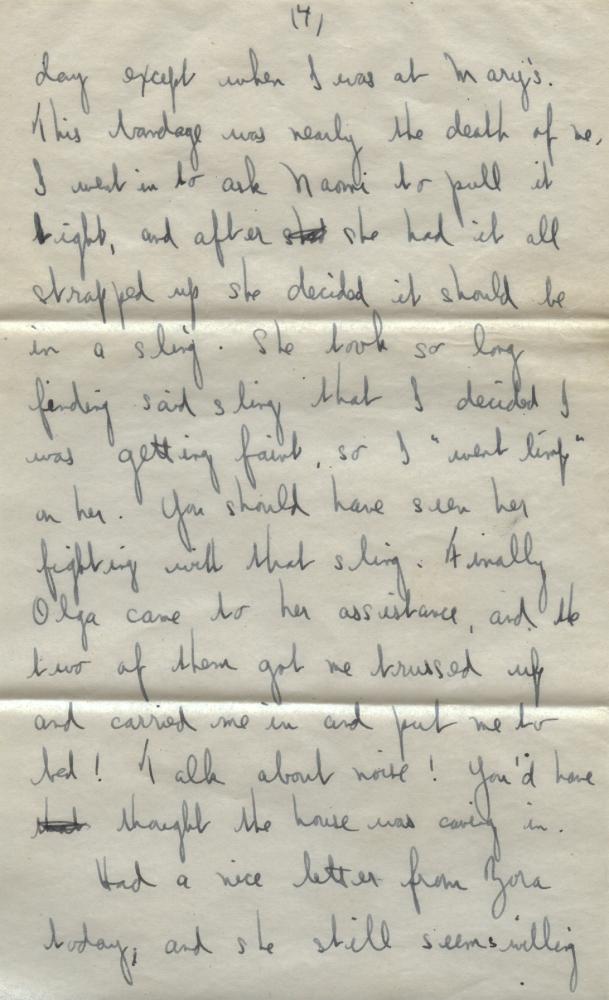 (4)
day except when I was at Mary's.
This bandage was nearly the death of me,
I went in to ask Naomi to pull it
tight, and after she had it all
strapped up she decided it should be
in a sling. She took so long
finding said sling that I decided I
was getting faint, so I "went limp"
on her. You should have seen her
fighting with that sling. Finally
Olga came to her assistance, and the
two of them got me trussed up
and carried me in and put me to
bed! Talk about noise! You'd have
thought the house was caving in.
Had a nice letter from Zora
today, and she still seems willing